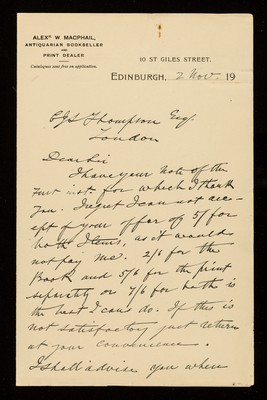 ALEXR. W. MACPHAIL,
ANTIQUARIAN BOOKSELLER
AND
PRINT DEALER.
Catalogues sent free on application.
10 ST GILES STREET,
EDINBURGH, 2 Nov. 19
CJS Thompson Esq.
London
Dear Sir
I have your Note of the
inst. for which I thank
you. I regret I can not acc-
ept of your offer of 5/ for
both Items, as it would
not pay me. 2/6 for the
Book and 5/6 for the print
seperately or 7/6 for both is
the best I can do. If this is
not satisfactory just return
at your convenience.
I shall advise you when